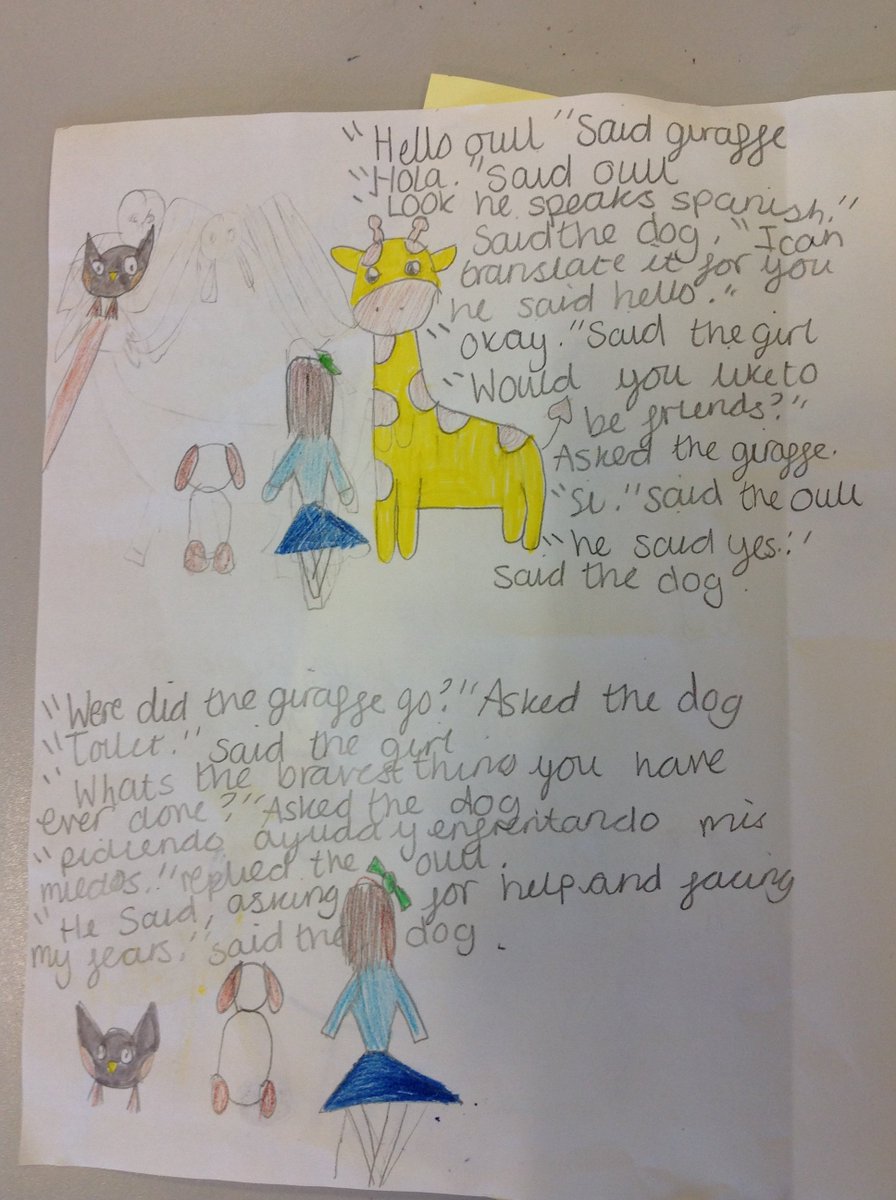 "Hello owl "Said giraffe
"Hola. "Said owl
"Look he speaks spanish."
Said the dog. "I can
translate it for you
he said hello."
"Okay. "Said the girl
"Would you like to
be friends?"
Asked the giraffe.
"Si." Said the owl
"he said yes."
Said the dog.
"Were did the giraffe go?" Asked the dog
"Toilet." said the girl.
"Whats the bravest thing you have
ever done?" Asked the dog
"pidiendo ayuda y enfrentando mis
miedos." replied the owl.
"He Said, asking for help and facing
my fears." said the dog.